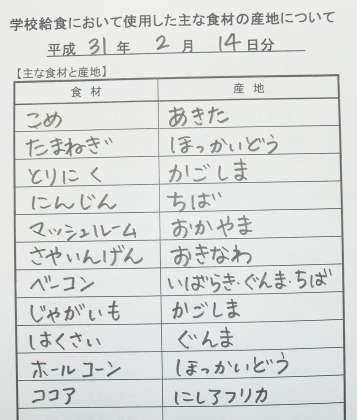 学校給食において使用した主な食材の産地について
平成 31 年 2 月 14 日分
【主な食材と産地】
食材 産地
こめ あきた
たまねぎ ほっかいどう
とりにく かごしま
にんじん ちば
マッシュルーム おかやま
さやいんげん おきなわ
ベーコン いばらき・ぐんま・ちば
じゃがいも かごしま
はくさい ぐんま
ホールコーン ほっかいどう
ココア にしアフリカ